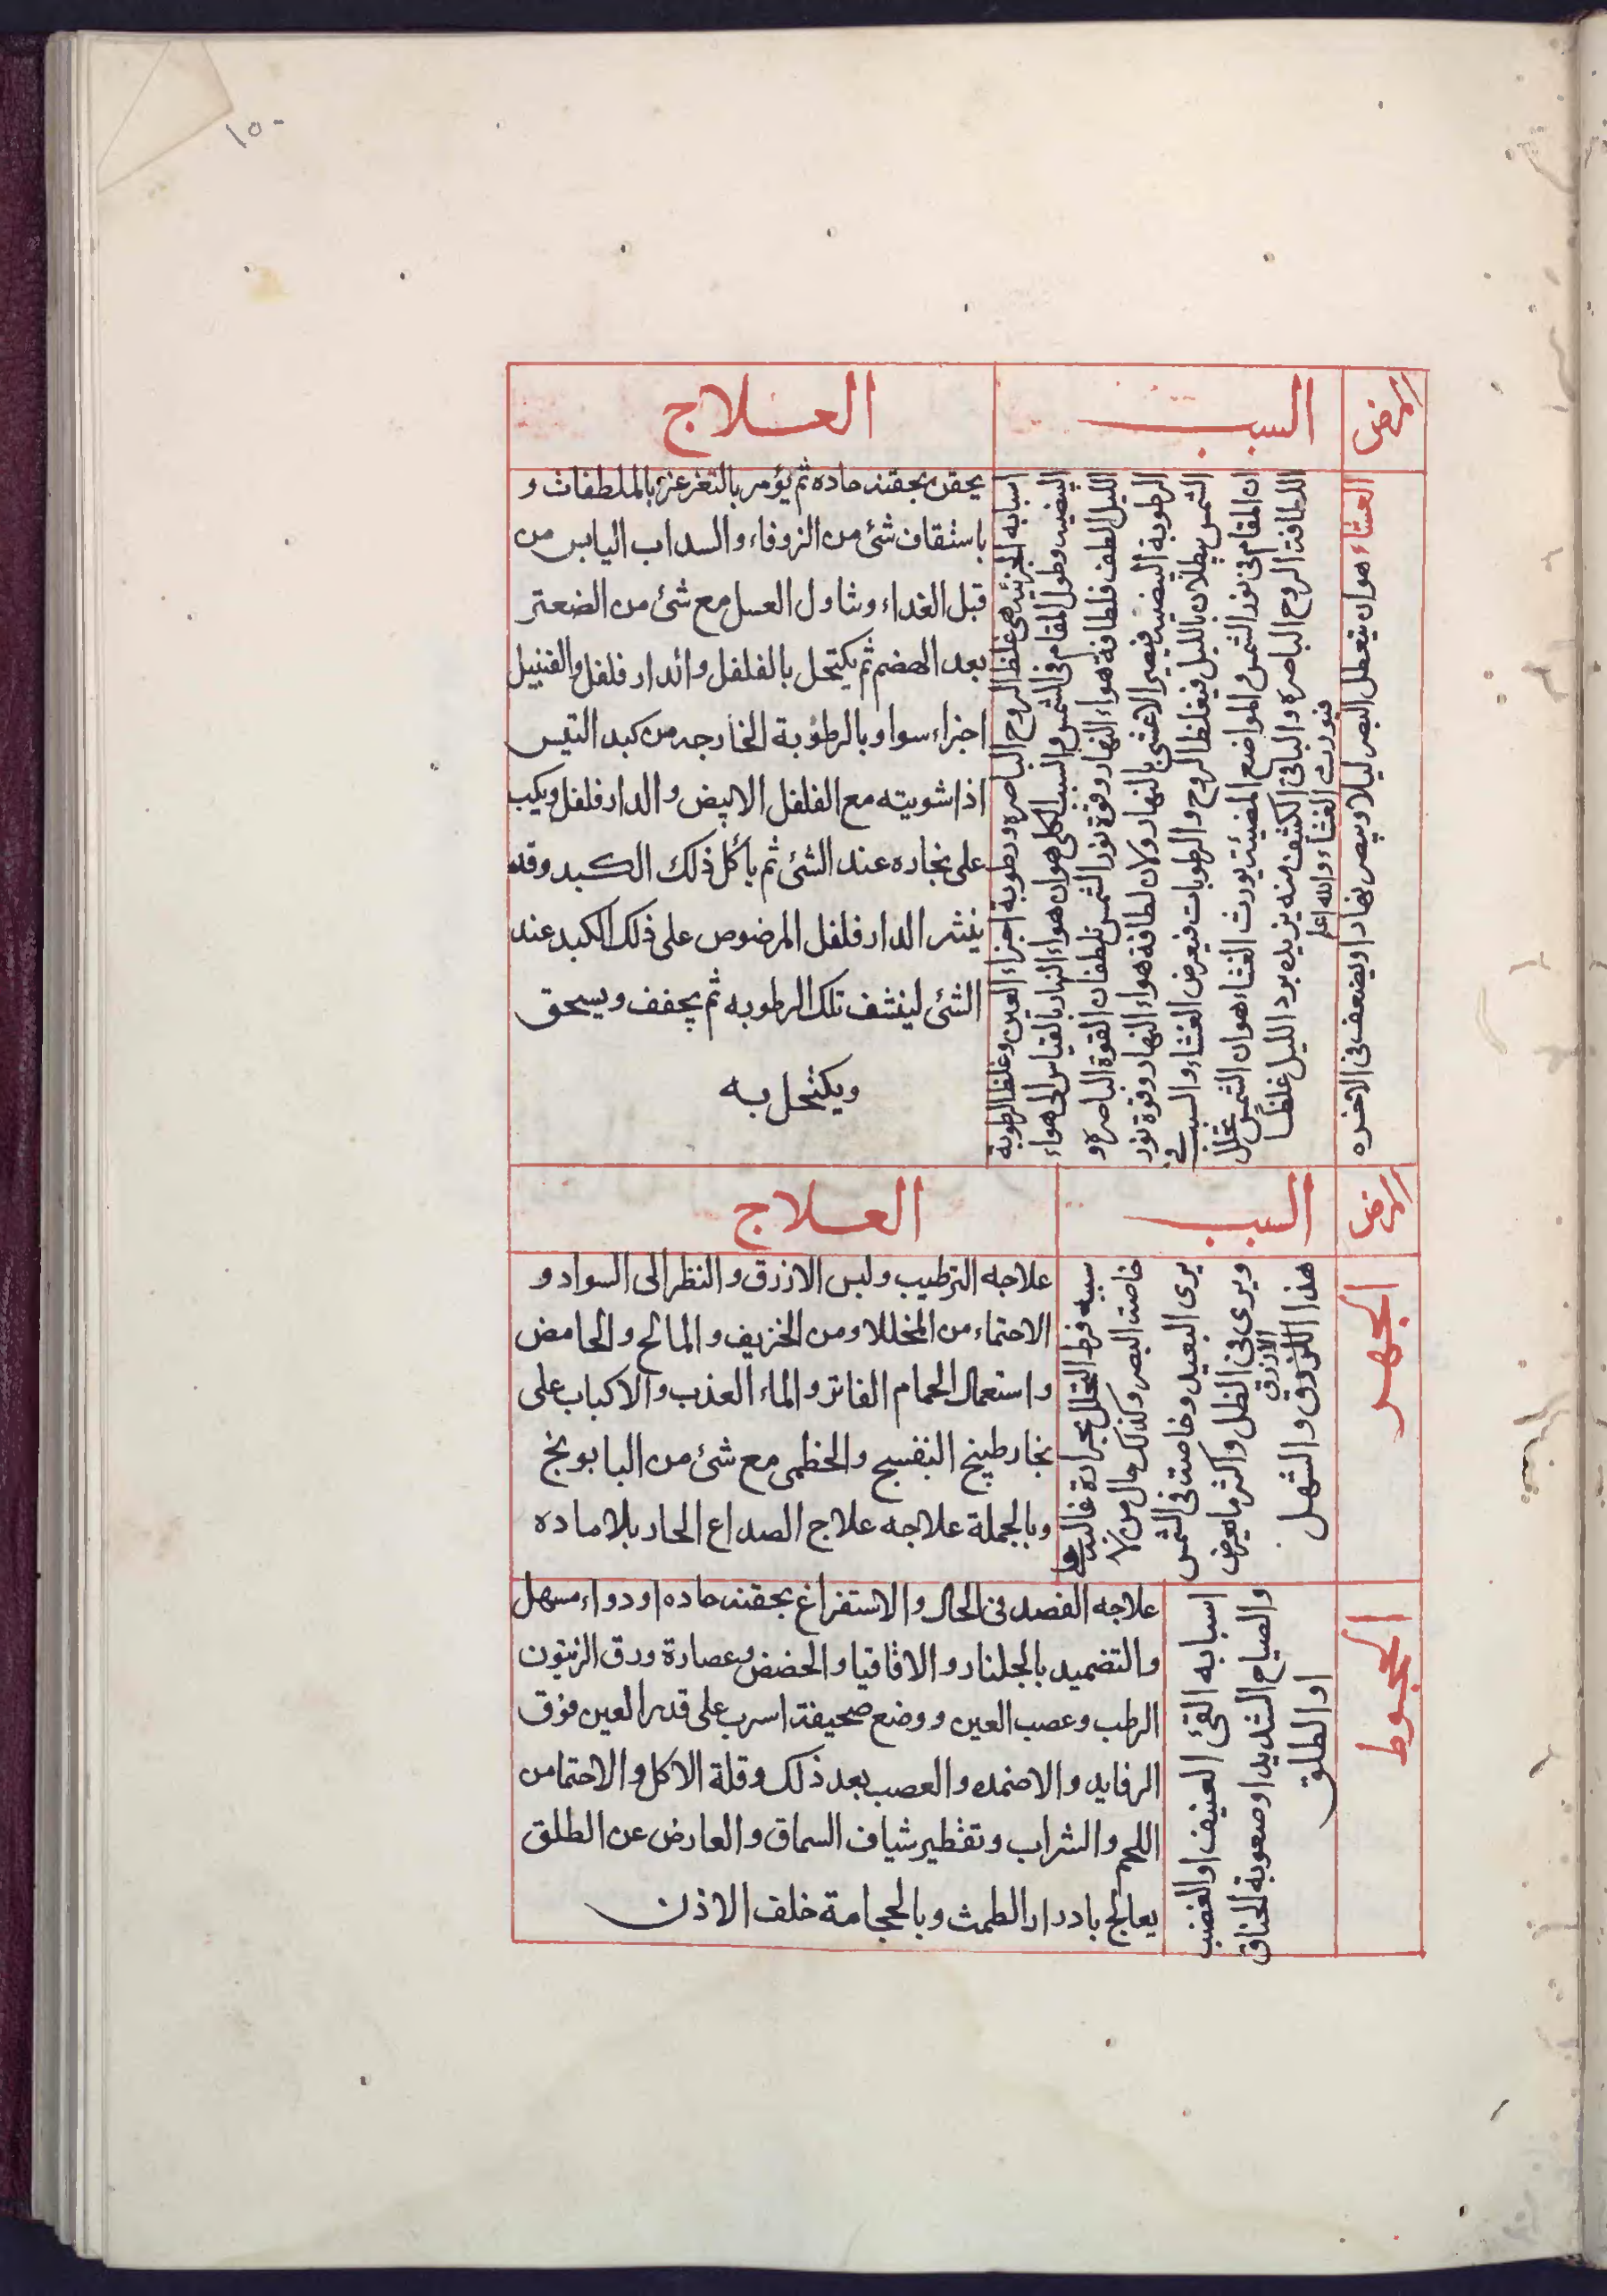 ١٥٠
المرض
السبب
العلاج
العشاء هو ان يتعطل البصر ليلا ويبصر نهارا ويضعف فى الاخره
اسبابه الجزئية هى غلظ الروح الباصره ورطوبة اجزاء العين وغلظ الرطوبة
البيضيه وطول المقام فى الشمس والسبب الكلى هو ان هواء النهار بالقياس الى هواء
الليل الطف فلطافة هواء النهار وقوة نور الشمس تلطفان القوة الباصره و
الرطوبة البيضيه فيصير الاعشى بالنهار ولان لطافة هواء النهار وقوة نور
الشمس يبطلان بالليل فيغلظ الروح والرطوبات فيعرض العشاء والسبب فى
ان المقام فى نور الشمس والمواضع المضيئة يورث العشاء هو ان الشمس تحلل
اللطافة الروح الباصره والباقى الكثف منه يزيده برد الليل غلظا
فيورث العشاء والله اعلم
يحقن بحقنه حاده ثم يؤمر بالتغرغر بالملطفات و
باستفاف شئ من الزوفاء والسداب اليابس من
قبل الغداء وتناول العسل مع شئ من الصعتر
بعد الهضم ثم يكتحل بالفلفل والدار فلفل والقنبيل
اجزاء سوا وبالرطوبة الخارجه من كبد التيس
اذا شويته مع الفلفل الابيض والدار فلفل ويكب
على بخاره عند الشئ ثم يأكل ذلك الكبد وقد
ينثر الدار فلفل المرضوض على ذلك الكبد عند
الشئ لينشف تلك الرطوبه ثم يجفف ويسحق
ويكتحل به
المرض
السبب
العلاج
الجهر
سببه فرط التحلل بحرارة غالبه فى
خاصة البصر وكذلك حال من لا
يرى البعيد وخاصة فى الشمس
ويرى فى الظل واكثر ما يعرض
هذا الازرق والشهل
الازرق
علاجه الترطيب ولبس الازرق والنظر الى السواد و
الاحتماء من المخللا ومن الحريف والمالح والحامض
واستعمال الحمام الفاتر والماء العذب والاكباب على
بخار طبيخ البنفسج والخطمى مع شئ من البابونج
وبالجملة علاجه علاج الصداع الحار بلا ماده
الجحوط
اسبابه القئ العنيف او الغضب
والصياح الشديد او صعوبة الخناق
او الطلق
علاجه الفصد فى الحال والاستفراغ بحقنه حاده او دواء مسهل
والتضميد بالجلنار والاقاقيا والحضض وعصارة ورق الزيتون
الرطب وعصب العين ووضع صحيفة اسرب على قدر العين فوق
الرفايد والاضمده والعصب بعد ذلك وقلة الاكل والاحتما من
اللحم والشراب وتقطير شياف السماق والعارض عن الطلق
يعالج بادرار الطمث وبالحجامة خلف الاذن